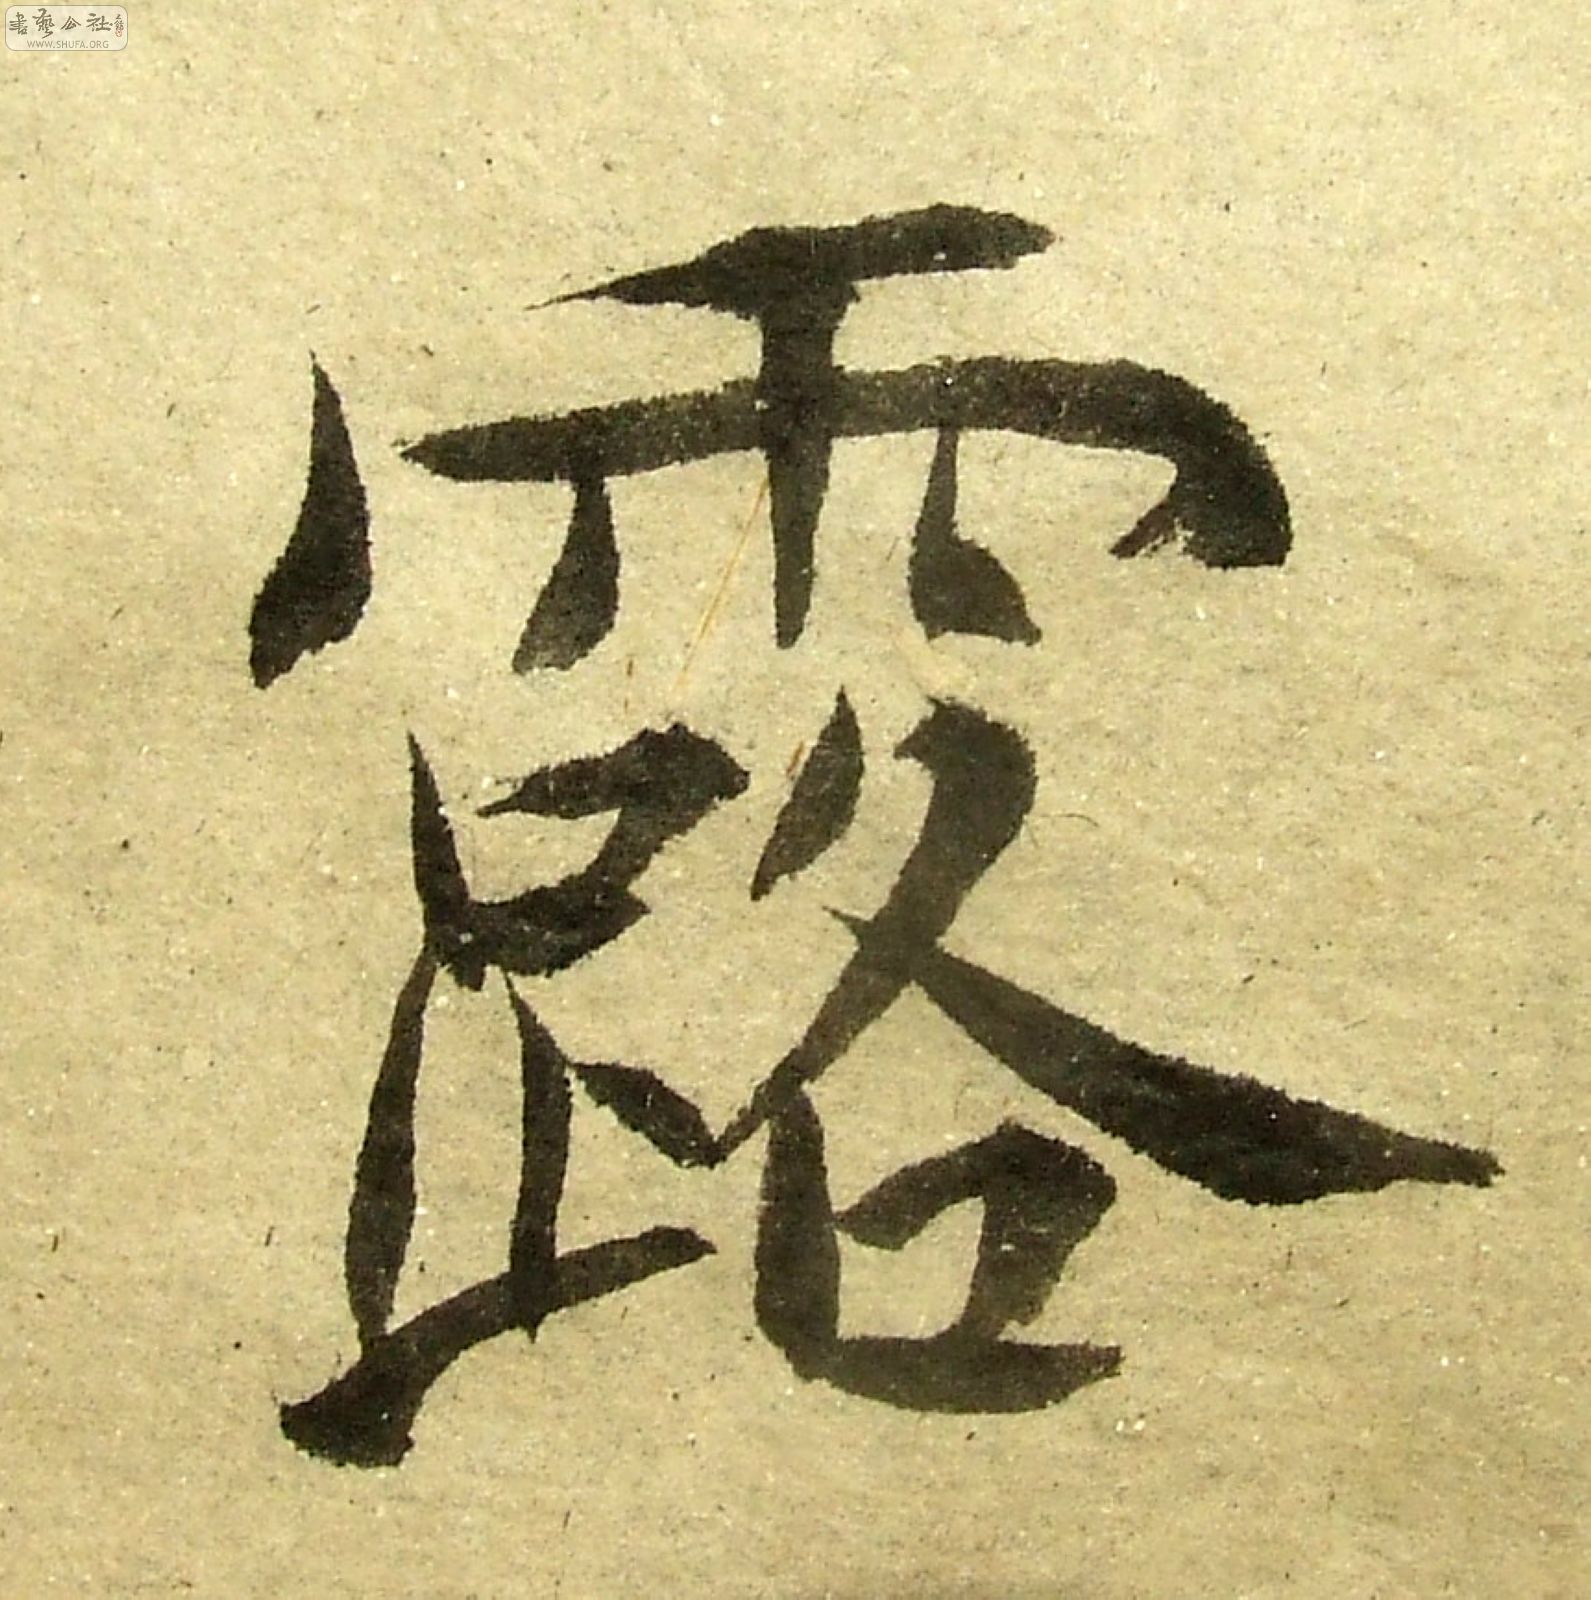 書藝公社
WWW.SHUFA.ORG
露